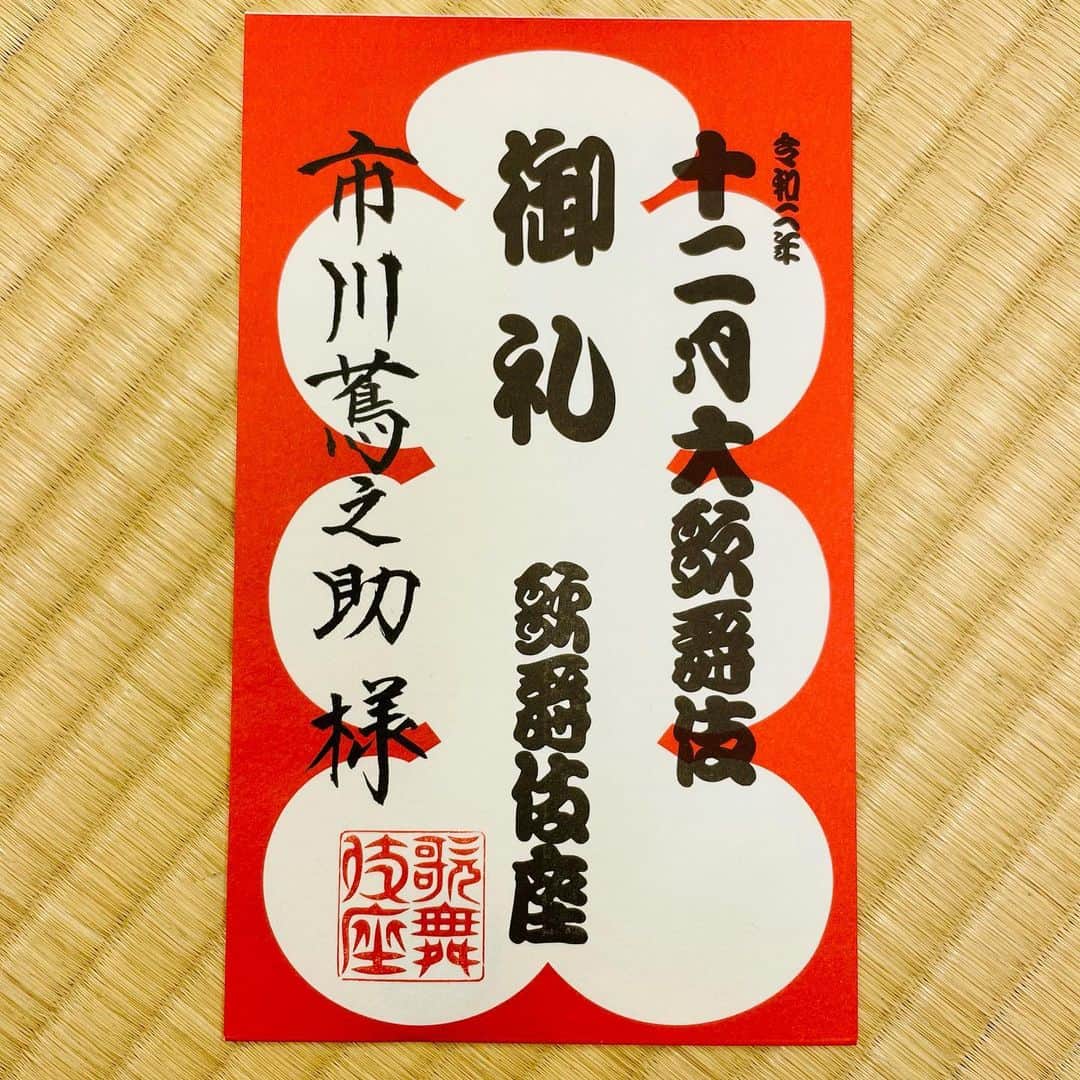 令和六年
十二月大歌舞伎
御礼
歌舞伎座
市川蔦之助様
歌舞
伎座